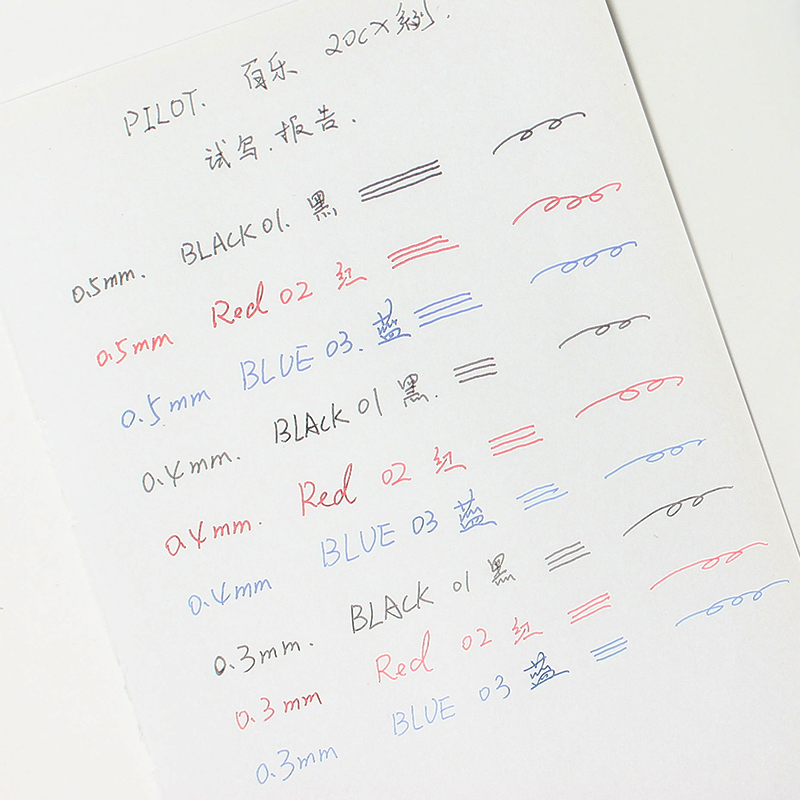 PILOT. 百乐 20CX系列.
试写.报告.
0.5mm. BLACK 01. 黑
0.5mm Red 02 红
0.5mm BLUE 03. 蓝
0.4mm. BLACK 01 黑.
0.4mm. Red 02 红
0.4mm BLUE 03 蓝
0.3mm. BLACK 01 黑
0.3mm Red 02 红
0.3mm BLUE 03 蓝